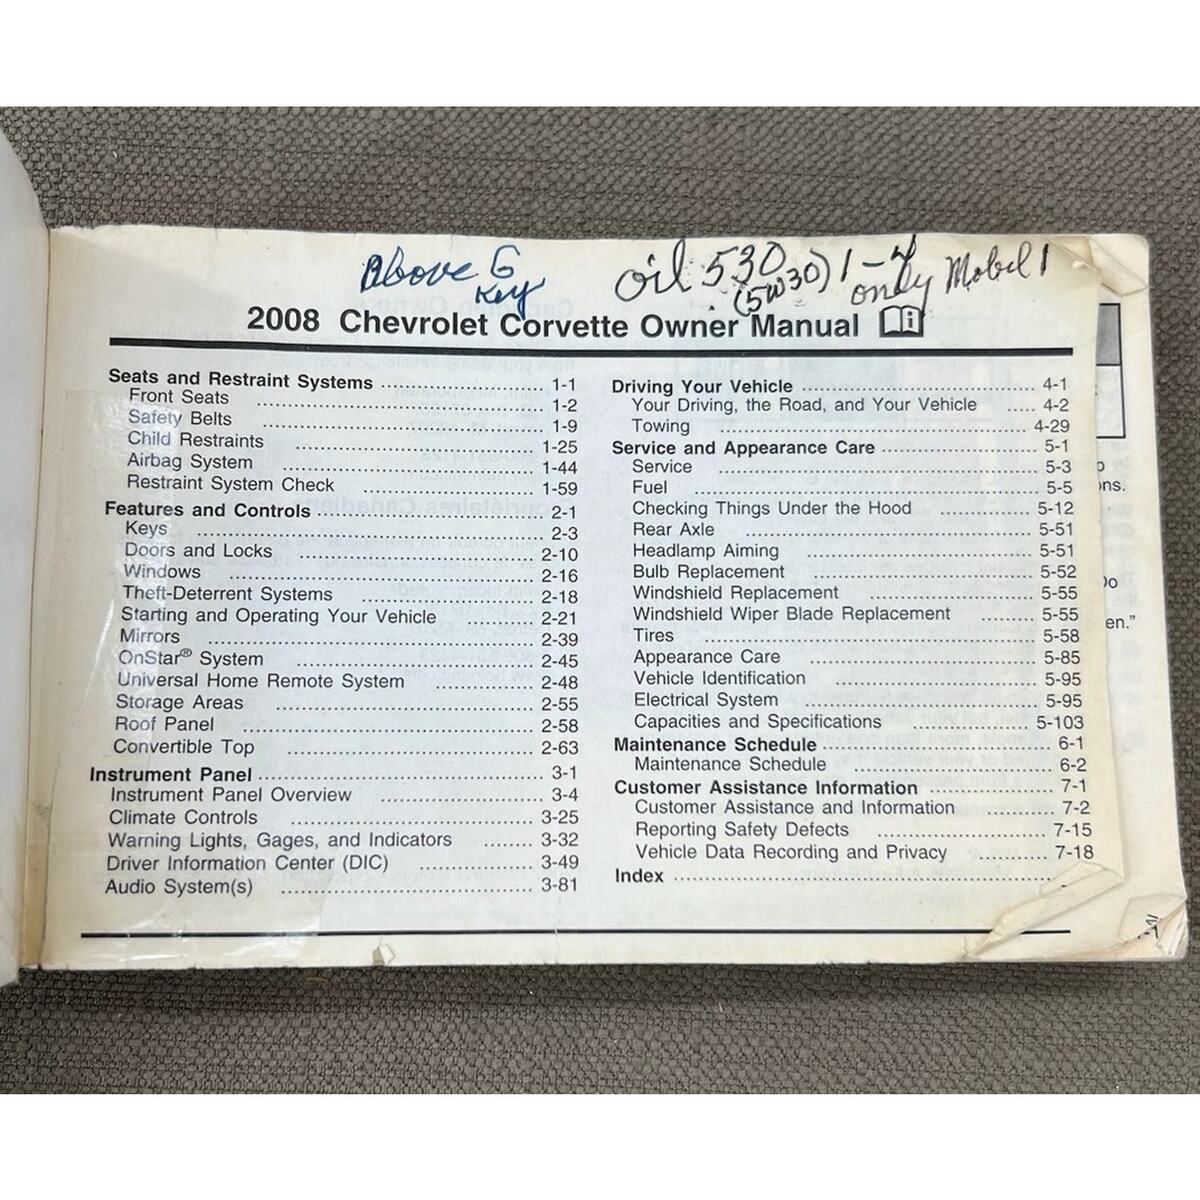 Above G
Key
oil 530 1-4
(5W30) only Mobil 1
2008 Chevrolet Corvette Owner Manual
Seats and Restraint Systems ........ 1-1
Front Seats ........ 1-2
Safety Belts ........ 1-9
Child Restraints ........ 1-25
Airbag System ........ 1-44
Restraint System Check ........ 1-59
Features and Controls ........ 2-1
Keys ........ 2-3
Doors and Locks ........ 2-10
Windows ........ 2-16
Theft-Deterrent Systems ........ 2-18
Starting and Operating Your Vehicle ........ 2-21
Mirrors ........ 2-39
OnStar® System ........ 2-45
Universal Home Remote System ........ 2-48
Storage Areas ........ 2-55
Roof Panel ........ 2-58
Convertible Top ........ 2-63
Instrument Panel ........ 3-1
Instrument Panel Overview ........ 3-4
Climate Controls ........ 3-25
Warning Lights, Gages, and Indicators ........ 3-32
Driver Information Center (DIC) ........ 3-49
Audio System(s) ........ 3-81
Driving Your Vehicle ........ 4-1
Your Driving, the Road, and Your Vehicle ..... 4-2
Towing ........ 4-29
Service and Appearance Care ........ 5-1
Service ........ 5-3
Fuel ........ 5-5
Checking Things Under the Hood ........ 5-12
Rear Axle ........ 5-51
Headlamp Aiming ........ 5-51
Bulb Replacement ........ 5-52
Windshield Replacement ........ 5-55
Windshield Wiper Blade Replacement ........ 5-55
Tires ........ 5-58
Appearance Care ........ 5-85
Vehicle Identification ........ 5-95
Electrical System ........ 5-95
Capacities and Specifications ........ 5-103
Maintenance Schedule ........ 6-1
Maintenance Schedule ........ 6-2
Customer Assistance Information ........ 7-1
Customer Assistance and Information ........ 7-2
Reporting Safety Defects ........ 7-15
Vehicle Data Recording and Privacy ........ 7-18
Index ........
ns.
en."